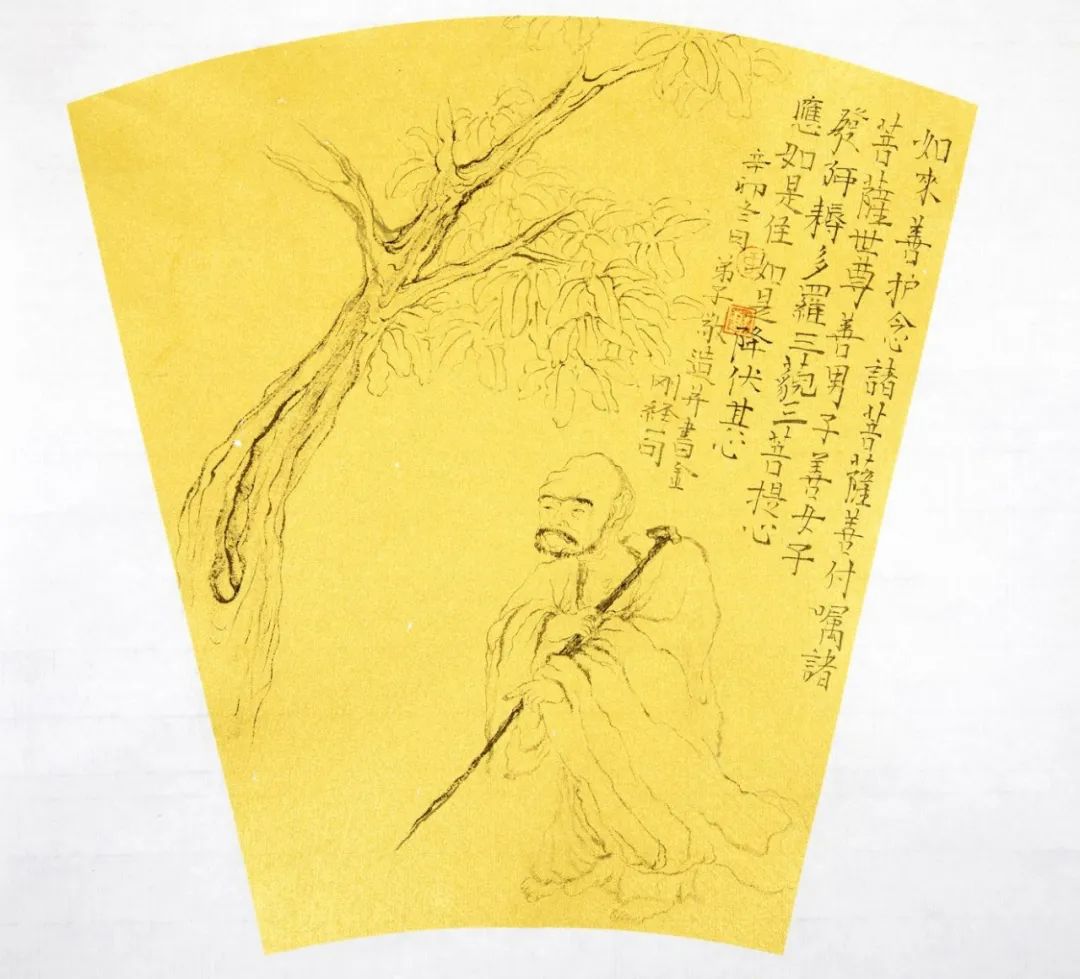 如來善护念諸菩薩善付囑諸
菩薩世尊善男子善女子
發阿耨多羅三藐三菩提心
應如是住如是降伏其心
辛卯冬日
弟子敬造并書金
刚経一句